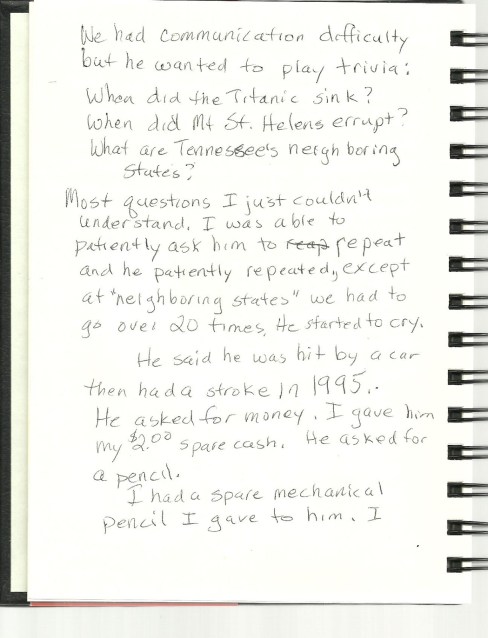 We had communication difficulty
but he wanted to play trivia:
When did the Titanic sink?
When did Mt St. Helens errupt?
What are Tennessee's neighboring
states?
Most questions I just couldn't
understand. I was able to
patiently ask him to reap repeat
and he patiently repeated, except
at "neighboring states" we had to
go over 20 times. He started to cry.
He said he was hit by a car
then had a stroke in 1995..
He asked for money. I gave him
my $2.00 spare cash. He asked for
a pencil.
I had a spare mechanical
pencil I gave to him. I